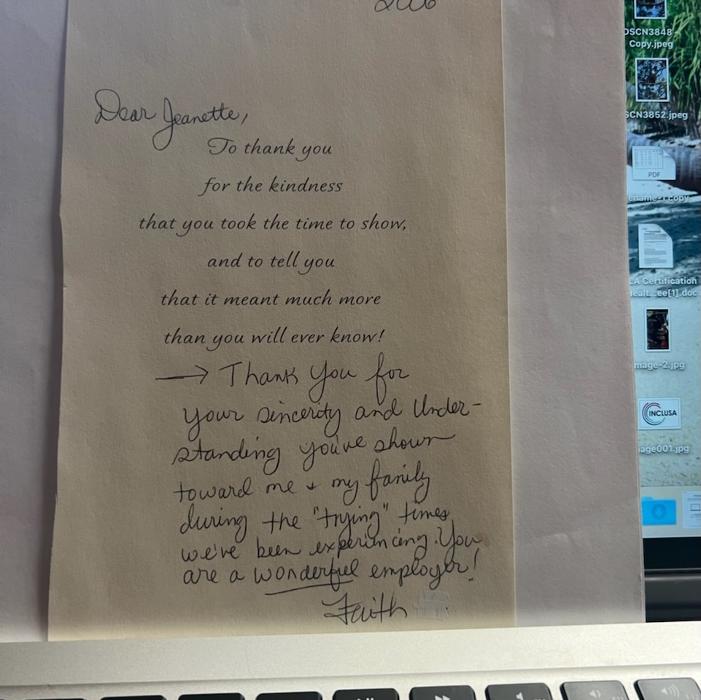 Dear Jeanette,
To thank you
for the kindness
that you took the time to show,
and to tell you
that it meant much more
than you will ever know!
→ Thank you for
your sincerity and Under-
standing you've shown
toward me & my family
during the "trying" times
we've been experiencing. You
are a wonderful employer!
Faith
DSCN3848
Copy.jpeg
SCN3852.jpeg
PDF
Certification
ee[1].doc
mage-2.jpg
INCLUSA
age001.jpg